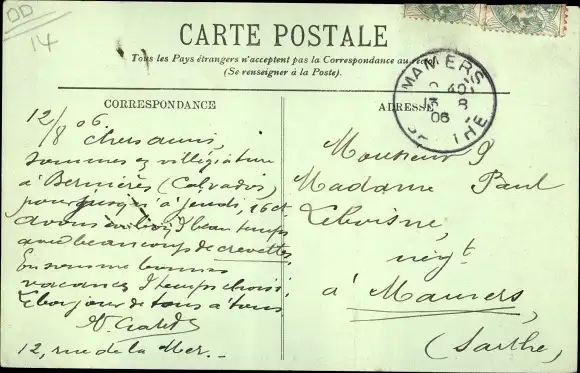 DD
14
CARTE POSTALE
Tous les Pays étrangers n'acceptent pas la Correspondance au recto
(Se renseigner à la Poste).
CORRESPONDANCE
ADRESSE
MAMERS
40
13 8
06
SARTHE
12/8 06
Chers amis,
sommes en villégiature
à Bernières (Calvados)
pour jusqu'à jeudi, 16 ct
avons beau temps
avec beaucoup de crevettes
En somme bonnes
vacances & temps choisi.
Le bonjour de tous à tous
12, rue de la Mer.
Monsieur &
Madame Paul
Leboisne,
négt
à Mamers,
(Sarthe)